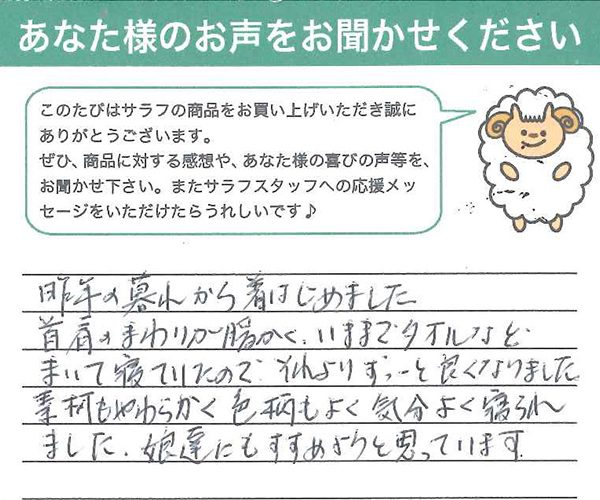 あなた様のお声をお聞かせください
このたびはサラフの商品をお買い上げいただき誠に
ありがとうございます。
ぜひ、商品に対する感想や、あなた様の喜びの声等を、
お聞かせ下さい。またサラフスタッフへの応援メッ
セージをいただけたらうれしいです♪
昨年の暮れから着はじめました
首肩のまわりが暖かく、いままでタオルなど
まいて寝ていたので それよりずーっと良くなりました
素材もやわらかく色柄もよく気分よく寝られ
ました、娘達にもすすめようと思っています。